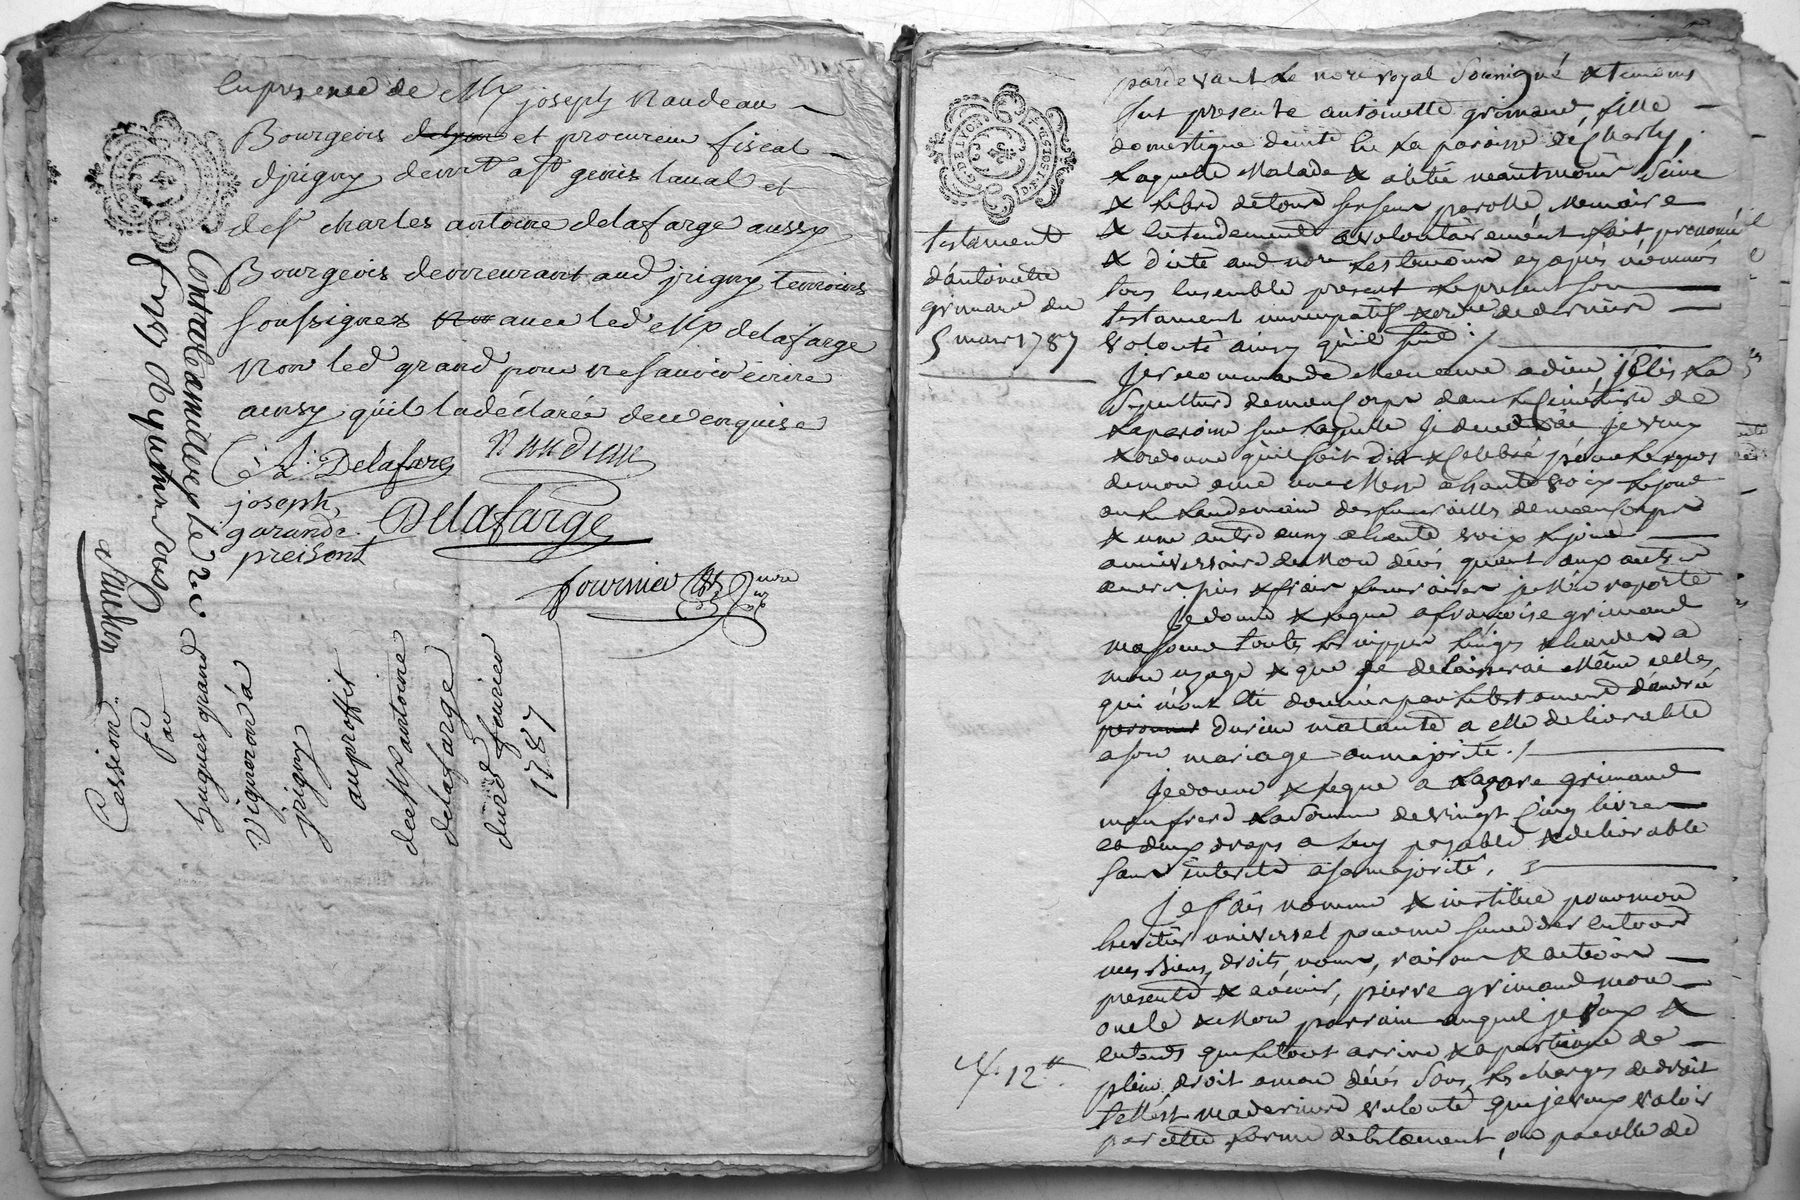 En presence de Mre joseph Naudeau
Bourgeois et procureur fiscal
d'jrigny demt a st genis laval et
de sr charles antoine delafarge aussy
Bourgeois demeurant aud jrigny temoins
soussignez avec led Mre delafarge
Non led grand pour ne savoir écrire
ainsy qu'il l'a déclarée de ce enquise
C. A. Delafarge Naudeau
joseph
garande
preisent
Delafarge
fournier
Controlé a millery le
Cession
Par
hugues grand
Vigneron a
jrigny
au proffit
de Mre antoine
delafarge
du 28 fevrier
1787
G. DE LYON
testament
d'antoinette
grimand du
5 mars 1787
pardevant le nore royal soussigné & temoins
fut presente antoinette grimand, fille
domestique de la paroisse de Charly,
laquelle Malade & alitée neantmoins Seine
& libre de tous ses sens parolle Memoire
& entendement a volontairement fait prononcé
& dicté aud nore les temoins cy après només
tous ensemble present le present son
testament nuncupatif & ordre de derniere
volonté ainsy qu'il suit :
Je recommande Mon ame a dieu, j'Elis la
Sepulture de mon Corps dans le Cimetiere de
la paroisse sur laquelle je decederai je veux
& ordonne qu'il soit dit & Celebré pour le repos
de mon ame une Messe a haute voix le jour
ou le landemain des funerailles de mon Corps
& une autre aussy a haute voix le jour
anniversaire de Mon décés quant aux autres
Je donne & legue a françoise grimand
ma soeur toutes les nippes linges & hardes a
mon usage & que je delaisserai Même celles
qui m'ont été données par le testament d'andrée
Durieu ma tante a elle delivrable
a son mariage ou majorité.
Je donne & legue a Lazare grimand
mon frere la Somme de vingt Cinq livres
et deux draps a luy payable & delivrable
sans interets a sa majorité.
Je fais nomme & institue pour mon
heritier universel pour me succeder en tous
mes Biens, droits, noms, raisons & actions
presents & avenir, pierre grimand mon
oncle & Mon parrain auquel je veux &
entends que le tout arrive & apartienne de
plein droit a mon décés Sous les charges de droit
telle est ma derniere volonté que je veux valoir
par cette forme de testament, ou par celle de
12